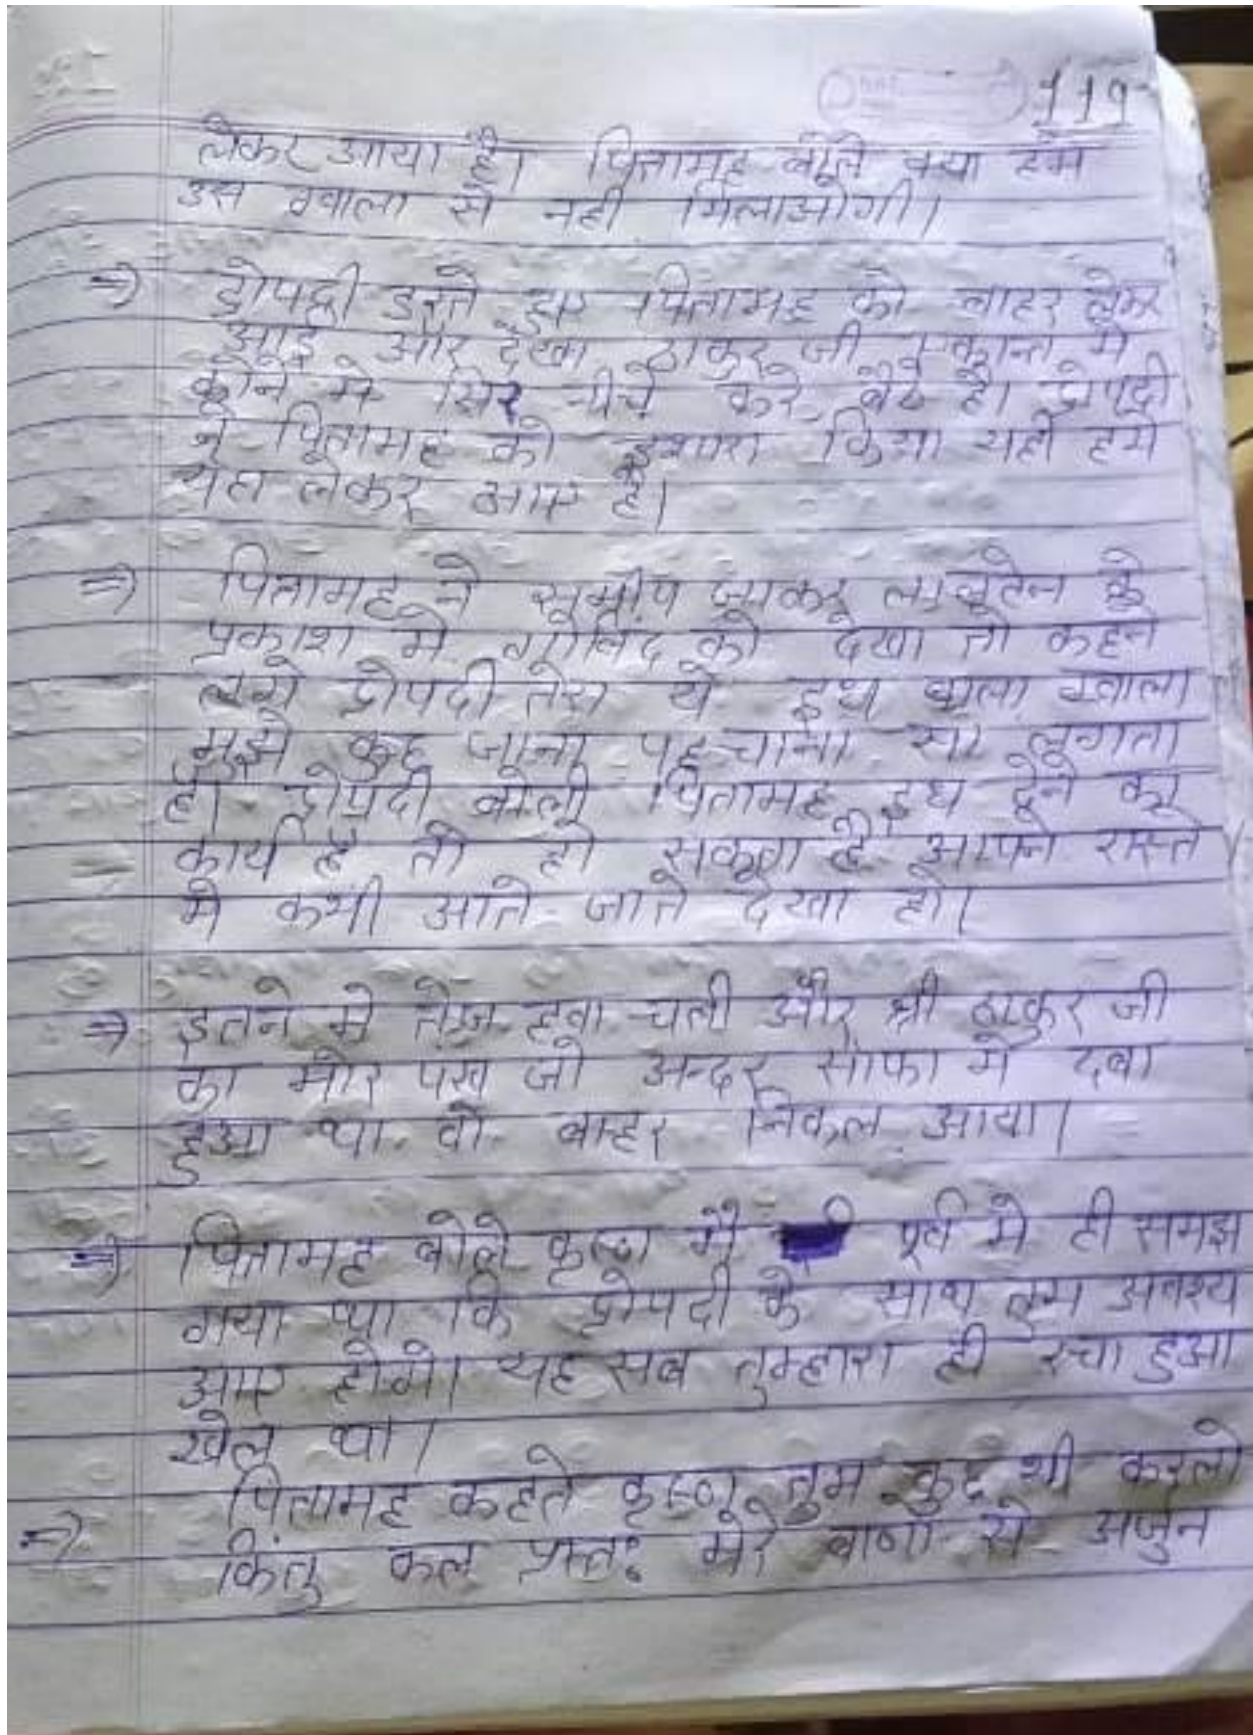 119
लेकर आया है। पितामह बोले क्या हमे
उस ग्वाला से नही मिलाओगी।
⇒ द्रोपद्री डरते हुए पितामह को बाहर लेकर
आई और देखा ठाकुर जी एकान्त मे
कोने मे सिर नीचे करे बैठे है। द्रोपद्री
ने पितामह को इशारा किया यही हमे
यहा लेकर आए है।
⇒ पितामह ने समीप जाकर लालटेन के
प्रकाश मे गोबिंद को देखा तो कहने
लगे द्रोपदी तेरा ये दूध वाला ग्वाला
मुझे कुछ जाना पहचाना सा लगता
है। द्रोपदी बोली पितामह दूध देने का
कार्य है तो हो सकता है आपने रास्ते
मे कभी आते जाते देखा हो।
⇒ इतने मे तेज हवा चली और श्री ठाकुर जी
का मोर पंख जो अन्दर साफा मे दबा
हुआ था वो बाहर निकल आया।
⇒ पितामह बोले कृष्ण मै पूर्व मे ही समझ
गया था कि द्रोपदी के साथ तुम अवश्य
आए होगे। यह सब तुम्हारा ही रचा हुआ
खेल था।
⇒ पितामह कहते कृष्ण तुम कुछ भी करलो
किंतु कल प्रातः मेरे बाणो से अर्जुन